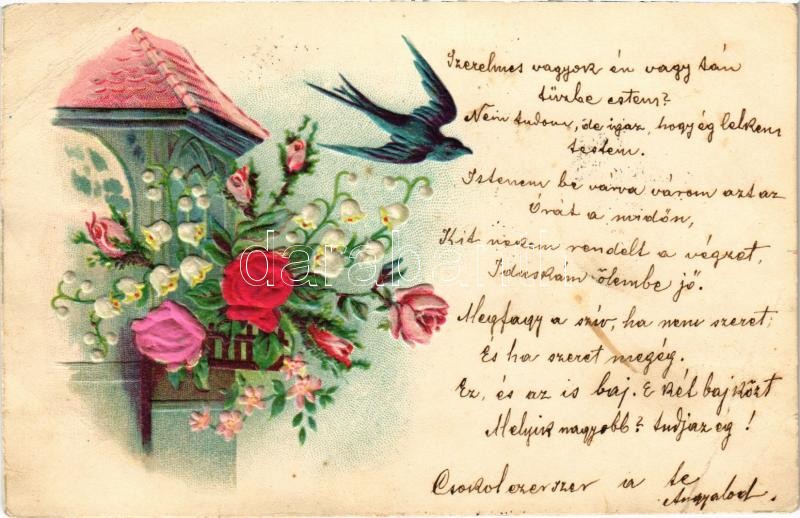 Szerelmes vagyok én vagy tán
tűzbe estem?
Nem tudom, de igaz, hogy ég lelkem
testem.
Istenem be várva várom azt az
Órát a midőn,
Kit nekem rendelt a végzet,
Iduskám ölembe jő.
Megfagy a szív, ha nem szeret,
És ha szeret megég.
Ez, és az is baj. E két baj közt
Melyik nagyobb? tudja az ég!
Csokol ezerszer a te
Angyalod.
darabanth